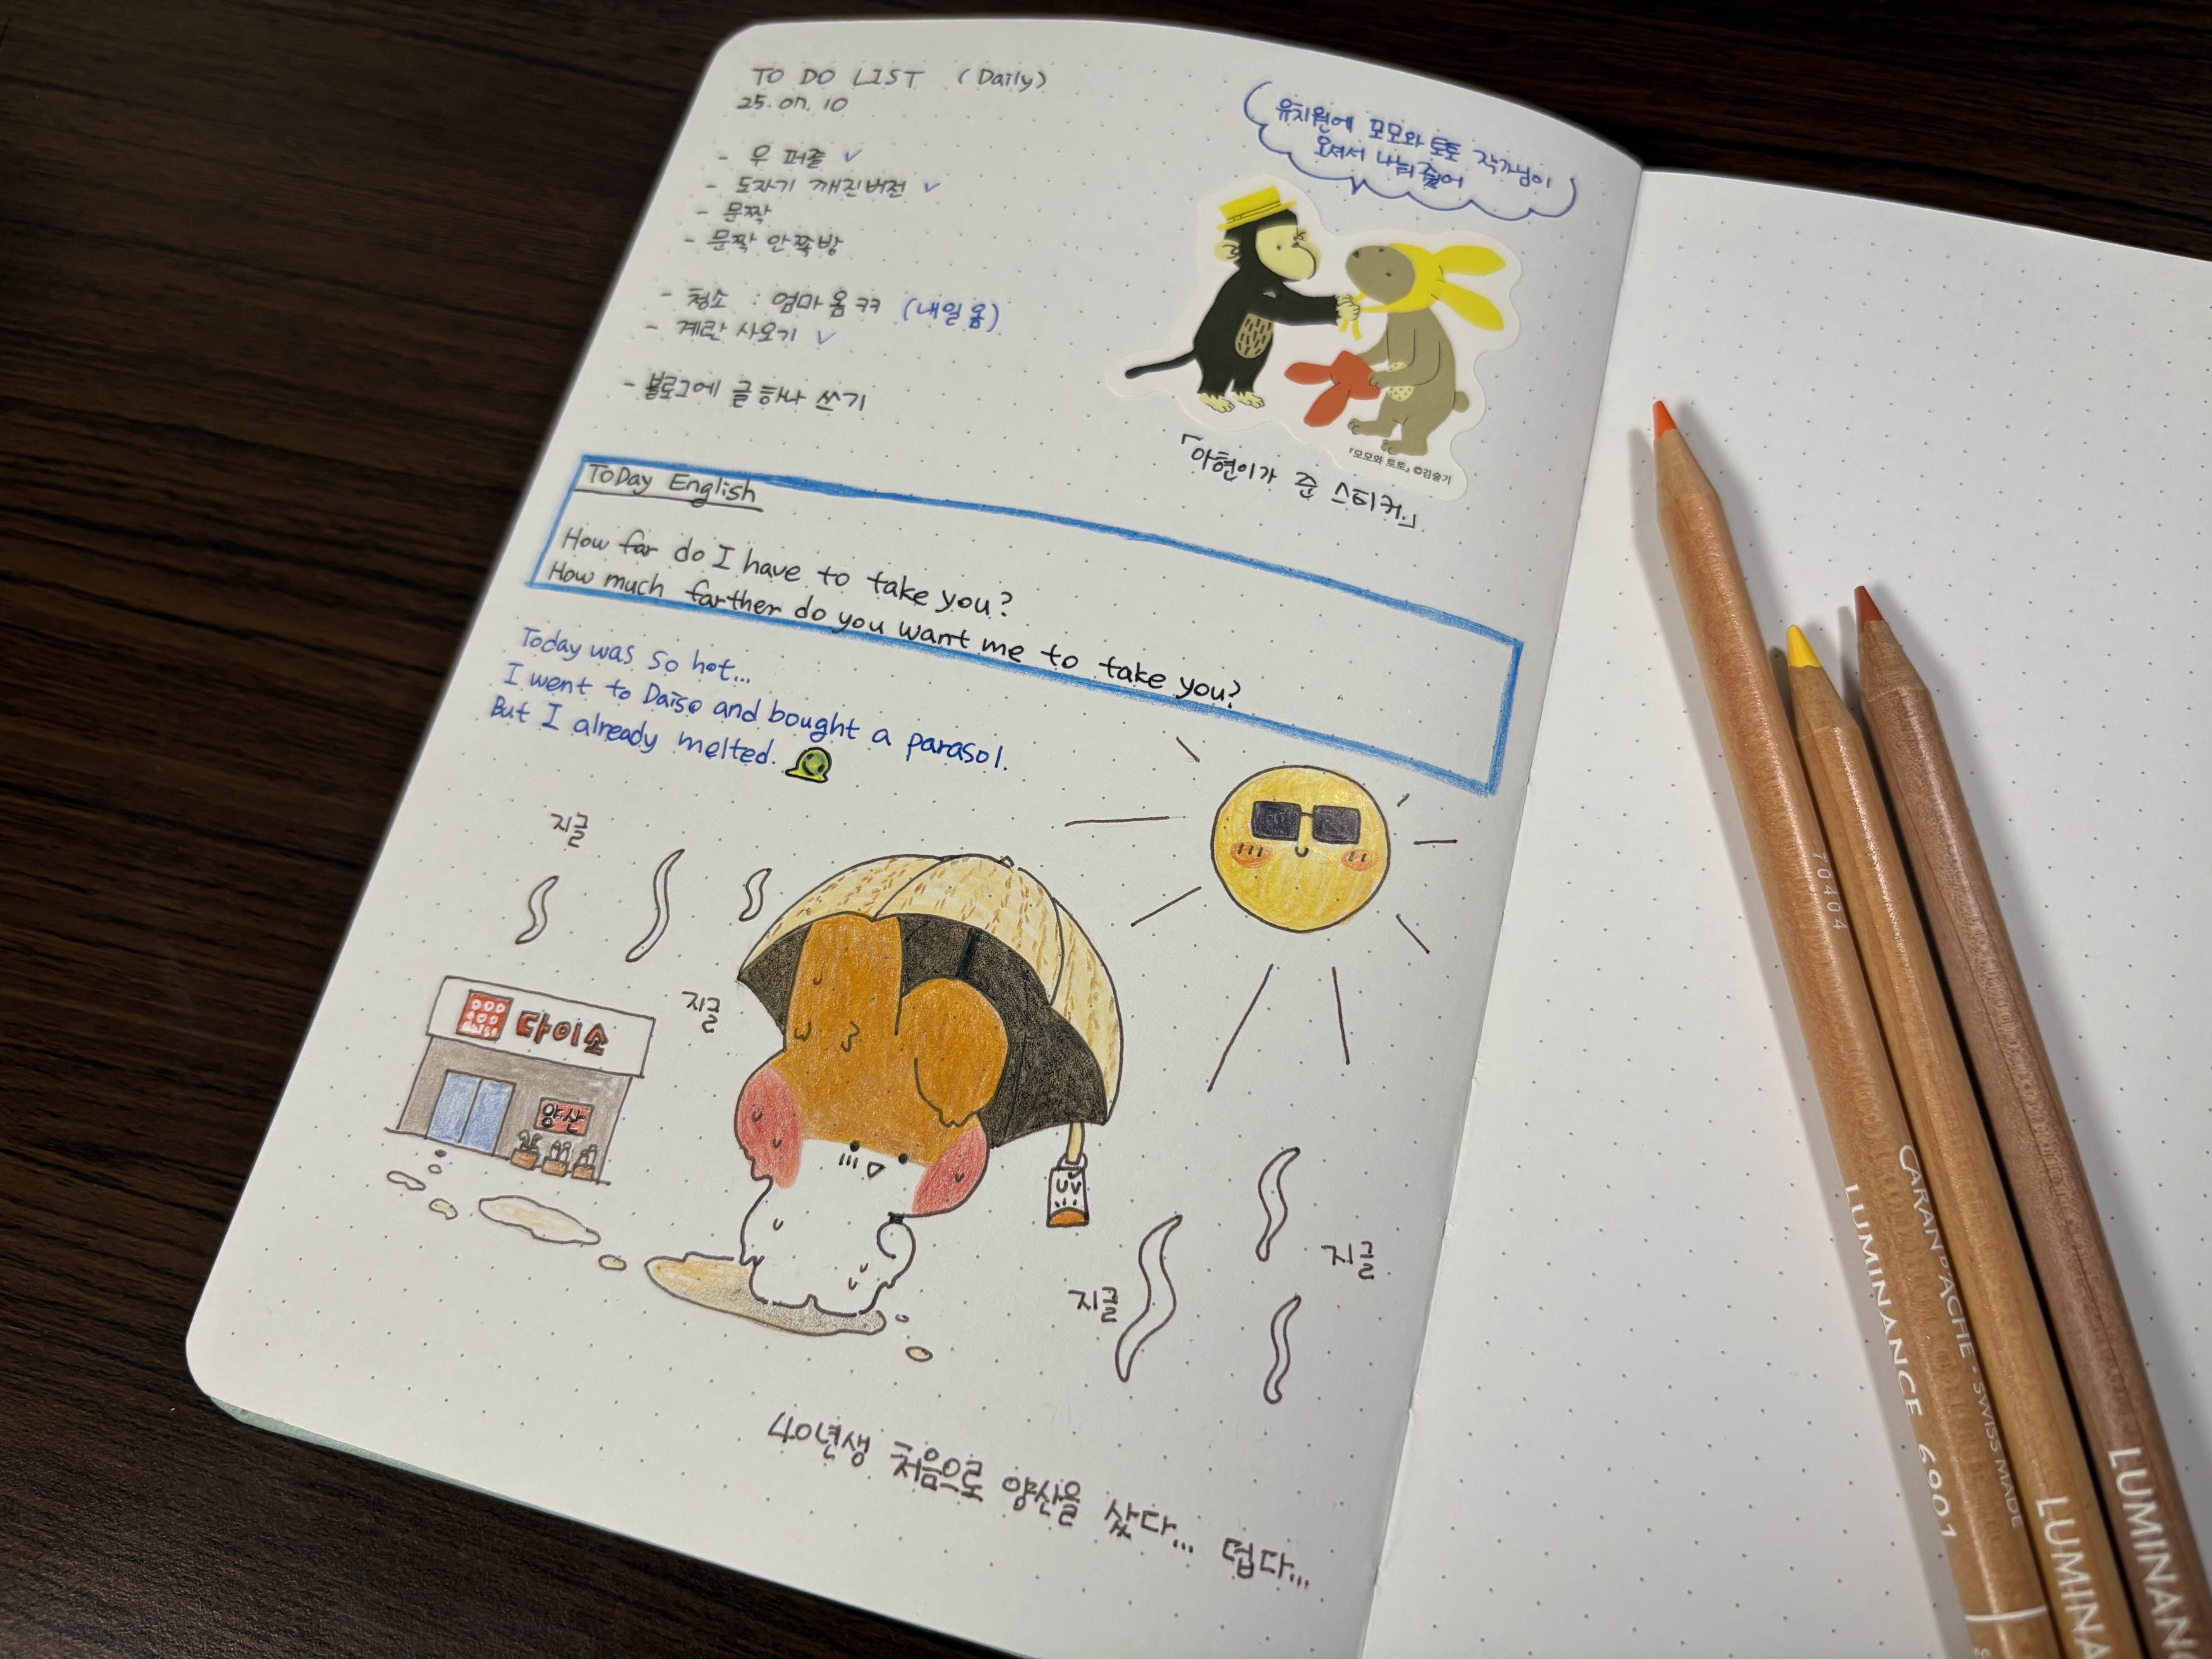 TO DO LIST (Daily)
25.07.10
- 우 퍼즐 ✓
- 도자기 깨진버전 ✓
- 문짝
- 문짝 안쪽방
- 청소 : 엄마옴 ㅋㅋ (내일옴)
- 계란 사오기 ✓
- 블로그에 글 하나 쓰기
유치원에 모모와 토토 작가님이
오셔서 나눠줬어
『모모와 토토』 ©김슬기
「아현이가 준 스티커」
ToDay English
How far do I have to take you?
How much farther do you want me to take you?
Today was so hot...
I went to Daiso and bought a parasol.
But I already melted.
지글
지글
다이소
양산
지글
지글
40년생 처음으로 양산을 샀다... 덥다...
70404
CARAN D'ACHE - SWISS MADE
LUMINANCE 6901
LUMINA
LUMINAN